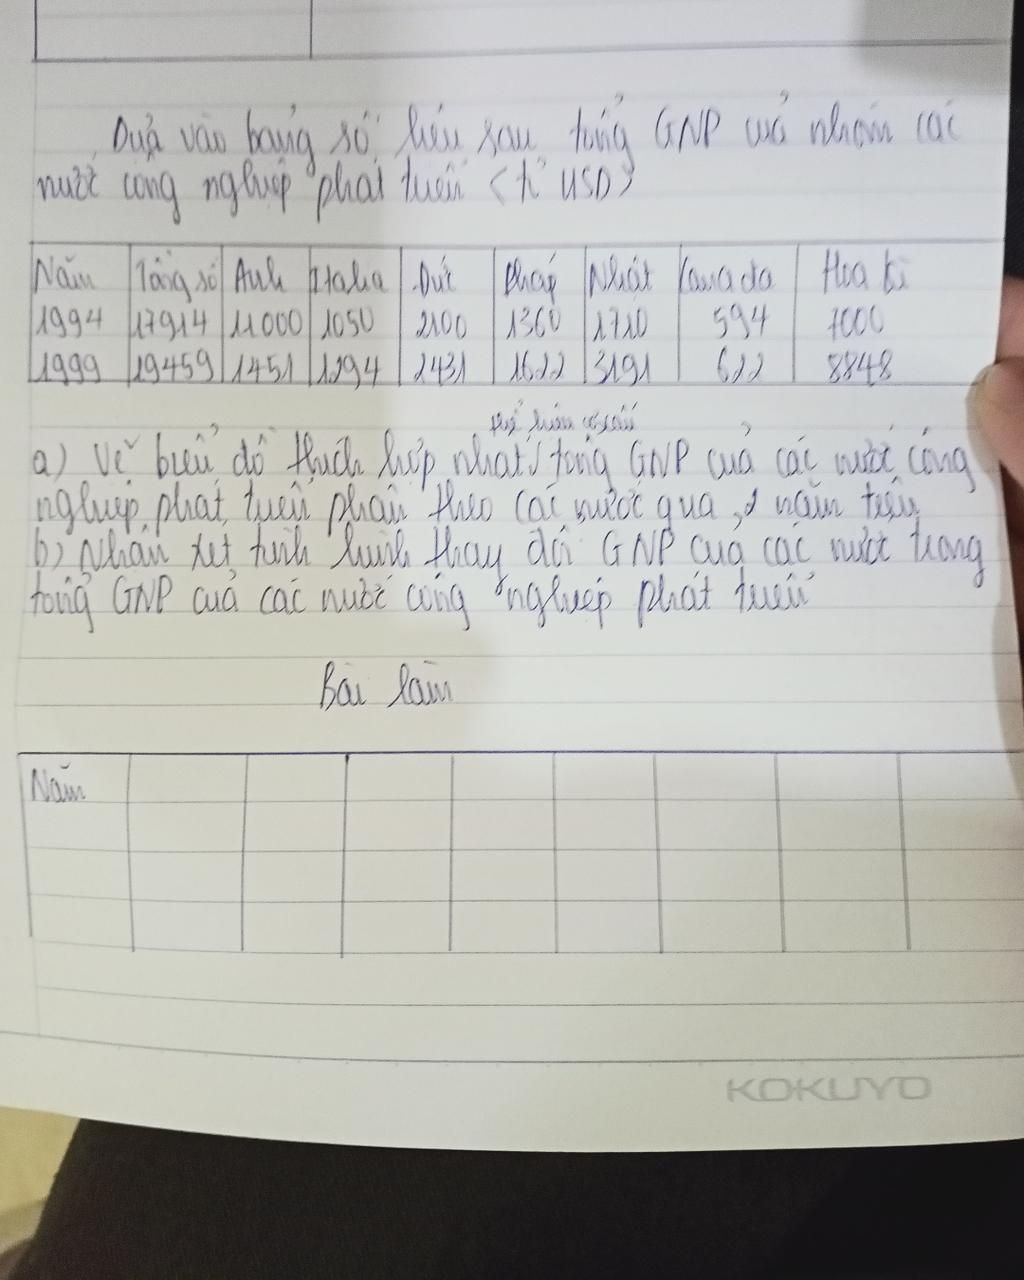 Dựa vào bảng số liệu sau tổng GNP của nhóm các
nước công nghiệp phát triển (tỉ USD)
Năm Tổng số Anh Italia Đức Pháp Nhật Canada Hoa kì
1994 17914 11000 1050 2100 1360 1710 594 7000
1999 19459 1451 1294 2431 1622 3191 622 8848
thể hiện cơ cấu
a) Vẽ biểu đồ thích hợp nhất tổng GNP của các nước công
nghiệp phát triển phân theo các nước qua 2 năm trên
b) Nhận xét tình hình thay đổi GNP của các nước trong
tổng GNP của các nước công nghiệp phát triển
Bài làm
Năm
KOKUYO